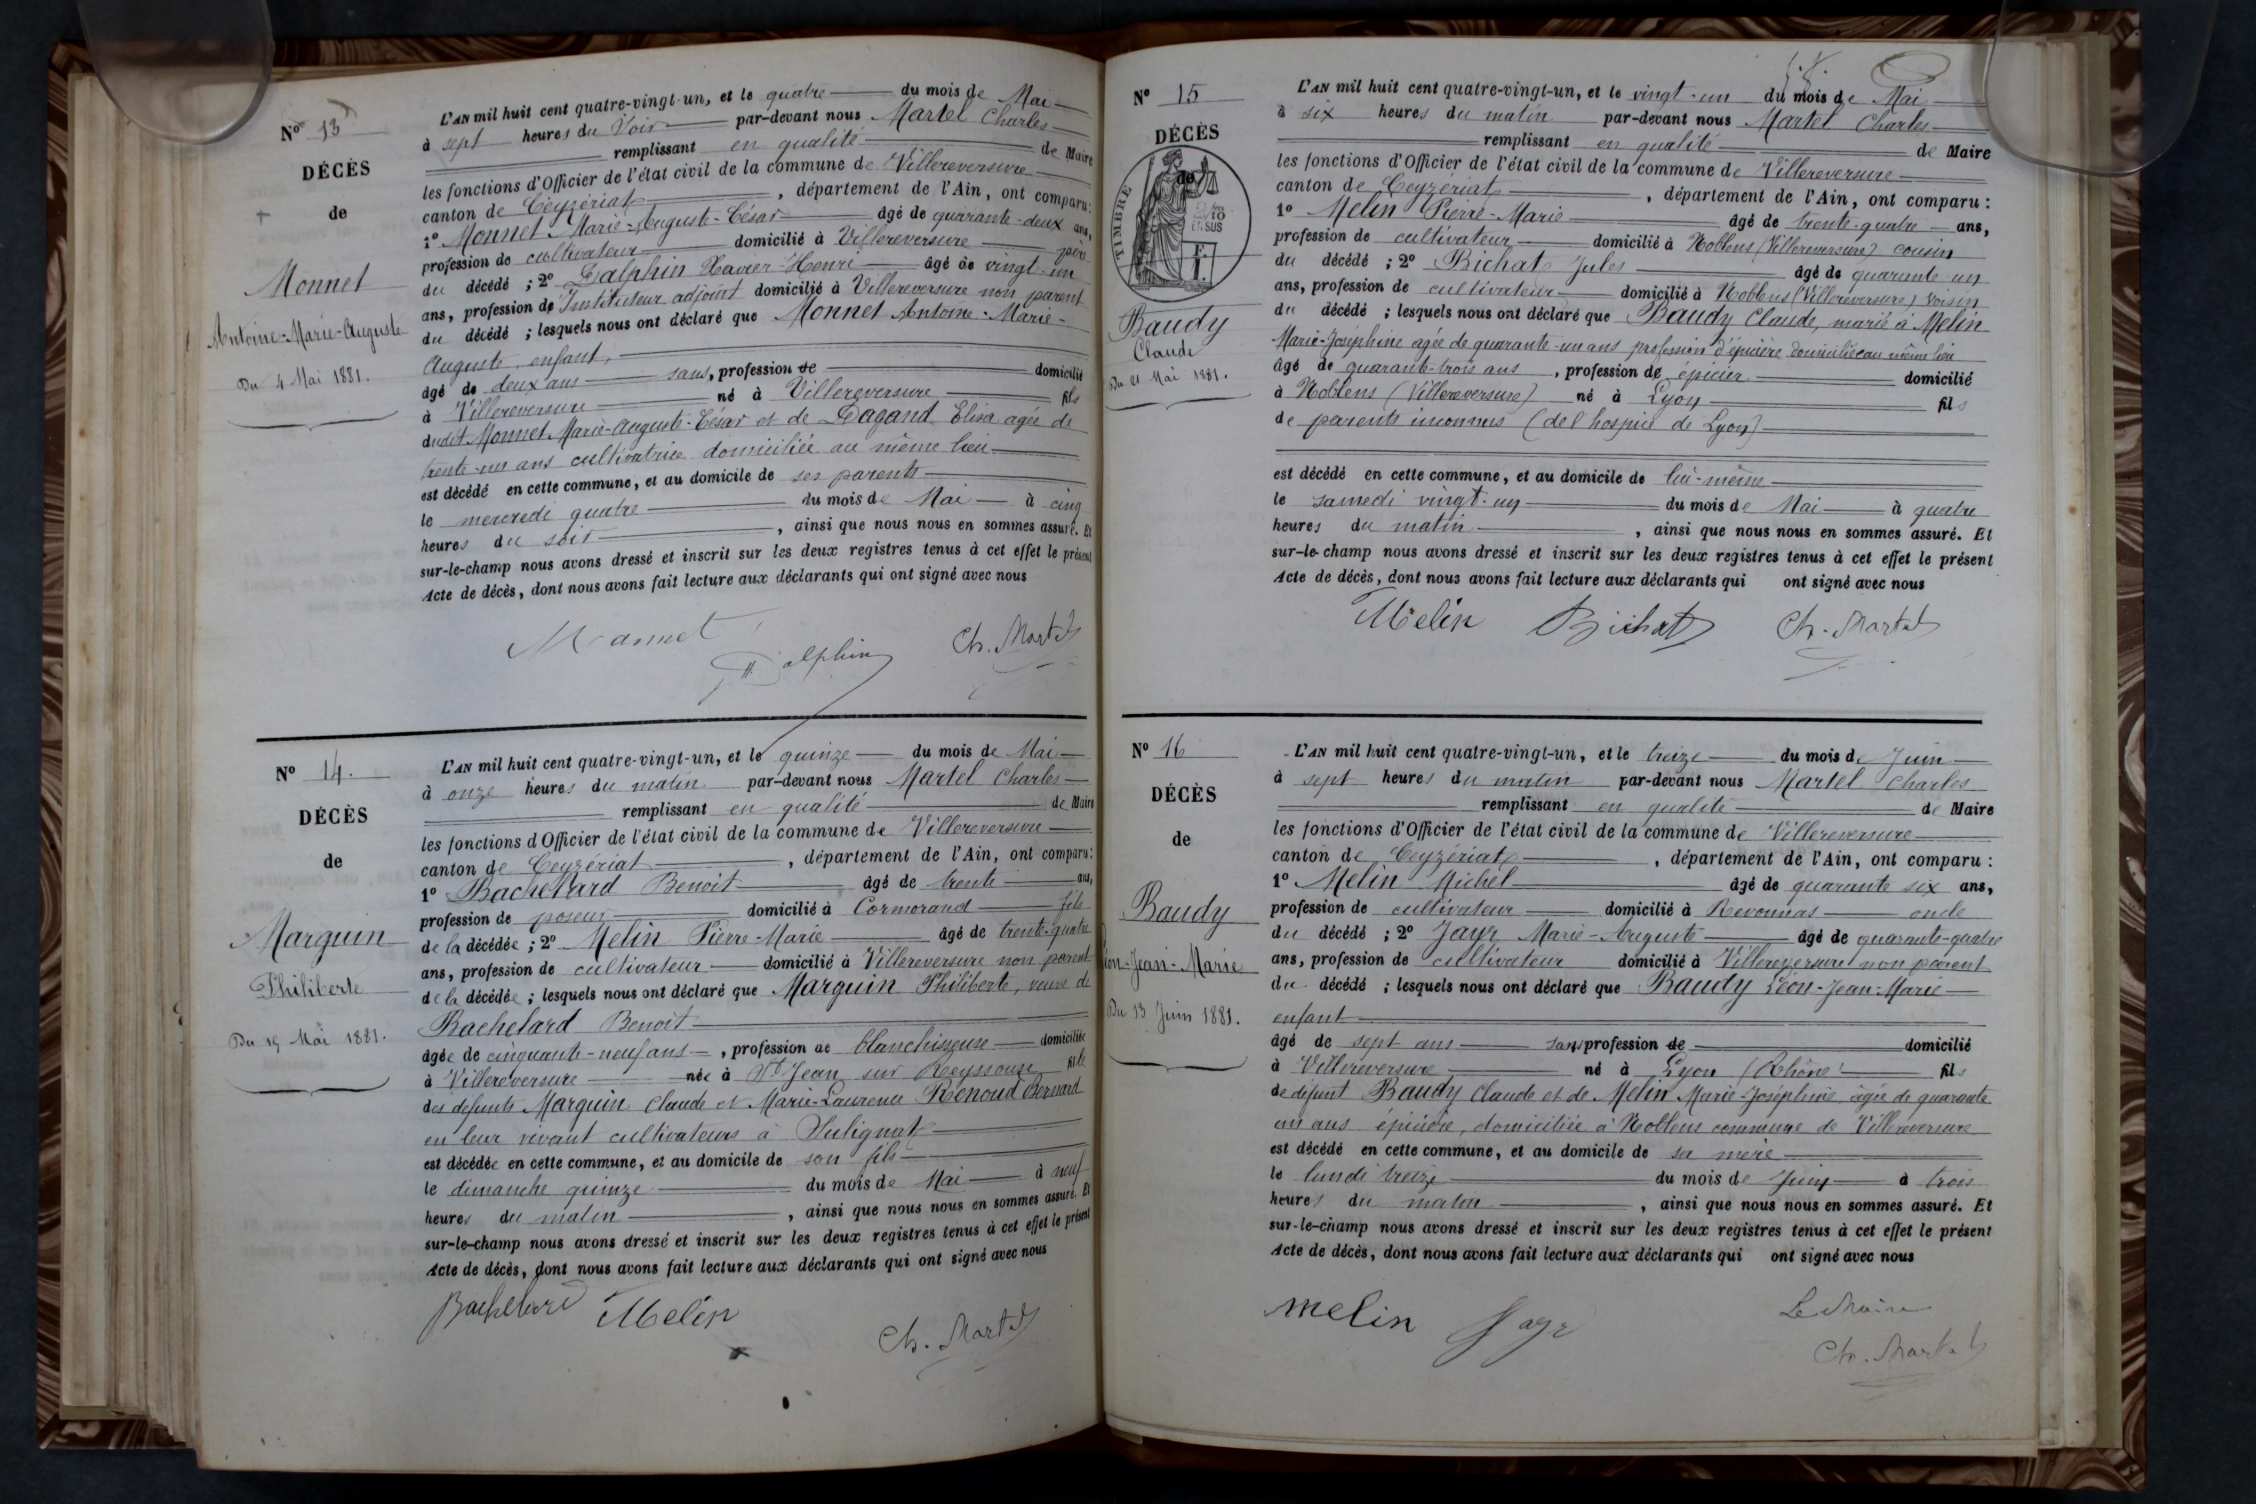 N° 13
DÉCÈS
de
Monnet
Antoine-Marie-Auguste
Du 4 Mai 1881.
L'AN mil huit cent quatre-vingt-un, et le quatre du mois de Mai
à sept heures du soir par-devant nous Martel Charles
remplissant en qualité de Maire
les fonctions d'Officier de l'état civil de la commune de Villereversure
canton de Ceyzériat, département de l'Ain, ont comparu:
1° Monnet Marie-Auguste-César âgé de quarante-deux ans,
profession de cultivateur domicilié à Villereversure père
du décédé ; 2° Dalphin Xavier-Henri âgé de vingt-un
ans, profession de Instituteur adjoint domicilié à Villereversure non parent
du décédé ; lesquels nous ont déclaré que Monnet Antoine-Marie-
Auguste, enfant,
âgé de deux ans sans, profession de domicilié
à Villereversure né à Villereversure fils
dudit Monnet Marie-Auguste-César et de Dagand Elisa agée de
trente-un ans cultivatrice domiciliée au même lieu
est décédé en cette commune, et au domicile de ses parents
le mercredi quatre du mois de Mai à cinq
heures du soir, ainsi que nous nous en sommes assuré. Et
sur-le-champ nous avons dressé et inscrit sur les deux registres tenus à cet effet le présent
Acte de décès, dont nous avons fait lecture aux déclarants qui ont signé avec nous
Monnet
Dalphin
Ch. Martel
N° 14.
DÉCÈS
de
Marguin
Philiberte
Du 15 Mai 1881.
L'AN mil huit cent quatre-vingt-un, et le quinze du mois de Mai
à onze heures du matin par-devant nous Martel Charles
remplissant en qualité de Maire
les fonctions d'Officier de l'état civil de la commune de Villereversure
canton de Ceyzériat, département de l'Ain, ont comparu:
1° Bachelard Benoit âgé de trente ans,
profession de poseur domicilié à Cormorand fils
de la décédée ; 2° Melin Pierre-Marie âgé de trente-quatre
ans, profession de cultivateur domicilié à Villereversure non parent
de la décédée ; lesquels nous ont déclaré que Marguin Philiberte, veuve de
Bachelard Benoit
âgée de cinquante-neuf ans, profession de blanchisseuse domiciliée
à Villereversure née à St Jean sur Reyssouze fille
des defunts Marguin Claude et Marie-Laurence Renoud Bernard
en leur vivant cultivateurs à Sulignat
est décédée en cette commune, et au domicile de son fils
le dimanche quinze du mois de Mai à neuf
heures du matin, ainsi que nous nous en sommes assuré. Et
sur-le-champ nous avons dressé et inscrit sur les deux registres tenus à cet effet le présent
Acte de décès, dont nous avons fait lecture aux déclarants qui ont signé avec nous
Bachelard
Melin
Ch. Martel
N° 15
DÉCÈS
de
TIMBRE
Baudy
Claude
Du 21 Mai 1881.
L'AN mil huit cent quatre-vingt-un, et le vingt-un du mois de Mai
à six heures du matin par-devant nous Martel Charles
remplissant en qualité de Maire
les fonctions d'Officier de l'état civil de la commune de Villereversure
canton de Ceyzériat, département de l'Ain, ont comparu:
1° Melin Pierre-Marie âgé de trente-quatre ans,
profession de cultivateur domicilié à Noblens (Villereversure) cousin
du décédé ; 2° Bichat Jules âgé de quarante un
ans, profession de cultivateur domicilié à Noblens (Villereversure) voisin
du décédé ; lesquels nous ont déclaré que Baudy Claude, marié à Melin
Marie-Joséphine agée de quarante-un ans profession d'épicière domiciliée au même lieu
âgé de quarante-trois ans, profession de épicier domicilié
à Noblens (Villereversure) né à Lyon fils
de parents inconnus (de l'hospice de Lyon)
est décédé en cette commune, et au domicile de lui-même
le samedi vingt-un du mois de Mai à quatre
heures du matin, ainsi que nous nous en sommes assuré. Et
sur-le-champ nous avons dressé et inscrit sur les deux registres tenus à cet effet le présent
Acte de décès, dont nous avons fait lecture aux déclarants qui ont signé avec nous
Melin
Bichat
Ch. Martel
N° 16
DÉCÈS
de
Baudy
Léon-Jean-Marie
Du 13 Juin 1881.
L'AN mil huit cent quatre-vingt-un, et le treize du mois de Juin
à sept heures du matin par-devant nous Martel Charles
remplissant en qualité de Maire
les fonctions d'Officier de l'état civil de la commune de Villereversure
canton de Ceyzériat, département de l'Ain, ont comparu:
1° Melin Michel âgé de quarante six ans,
profession de cultivateur domicilié à Revonnas oncle
du décédé ; 2° Jayr Marie-Auguste âgé de quarante-quatre
ans, profession de cultivateur domicilié à Villereversure non parent
du décédé ; lesquels nous ont déclaré que Baudy Léon-Jean-Marie
enfant
âgé de sept ans sans profession de domicilié
à Villereversure né à Lyon (Rhône) fils
de défunt Baudy Claude et de Melin Marie-Joséphine, agée de quarante
un ans épicière, domiciliée à Noblens commune de Villereversure
est décédé en cette commune, et au domicile de sa mère
le lundi treize du mois de Juin à trois
heures du matin, ainsi que nous nous en sommes assuré. Et
sur-le-champ nous avons dressé et inscrit sur les deux registres tenus à cet effet le présent
Acte de décès, dont nous avons fait lecture aux déclarants qui ont signé avec nous
melin
Jayr
Le Maire
Ch. Martel